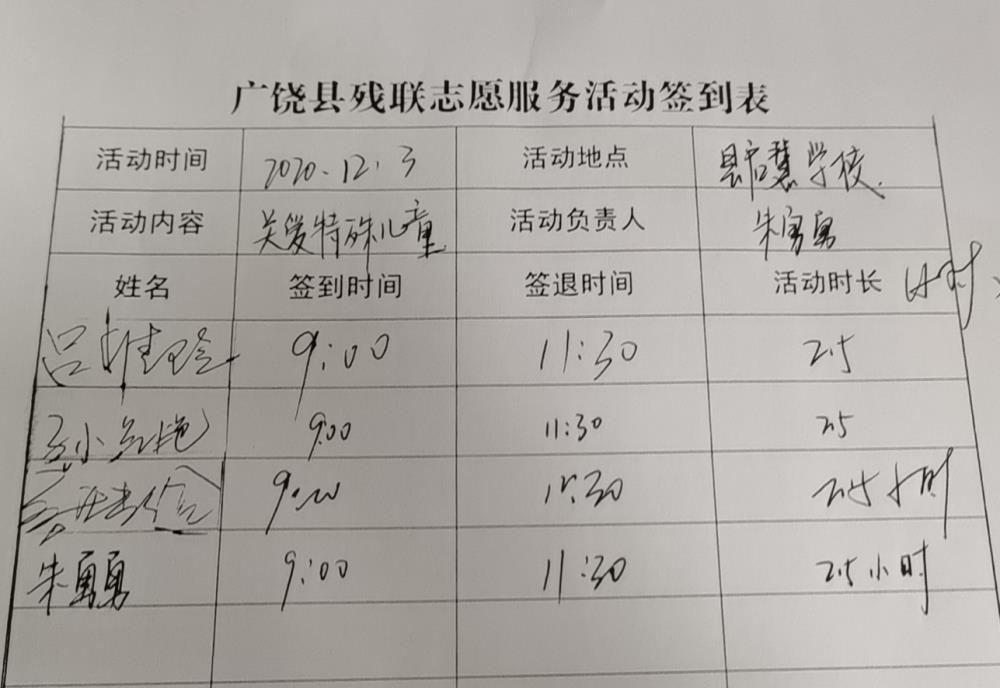 广饶县残联志愿服务活动签到表
活动时间 2020.12.3 活动地点 县启慧学校.
活动内容 关爱特殊儿童 活动负责人 朱勇勇
姓名 签到时间 签退时间 活动时长 小时
吕 9:00 11:30 2.5
小 9:00 11:30 2.5
9:00 11:30 2.5小时
朱勇勇 9:00 11:30 2.5小时